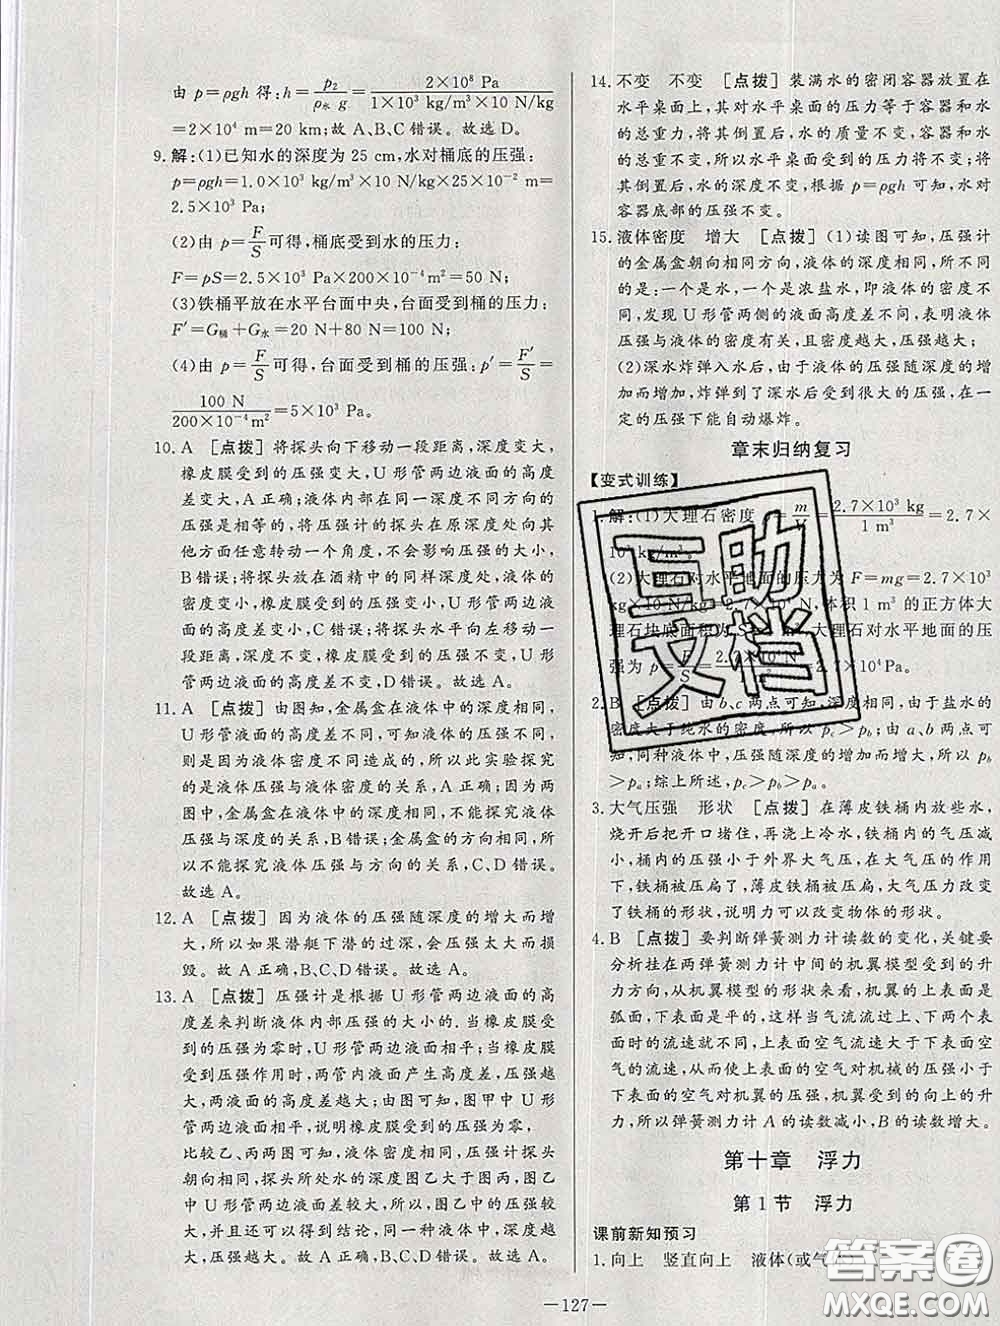 由 p=ρgh 得:h=p₂/(ρ水 g)=2×10⁸ Pa/(1×10³ kg/m³×10 N/kg)
=2×10⁴ m=20 km;故 A、B、C 错误。故选 D。
9.解:(1)已知水的深度为 25 cm,水对桶底的压强:
p=ρgh=1.0×10³ kg/m³×10 N/kg×25×10⁻² m=
2.5×10³ Pa;
(2)由 p=F/S可得,桶底受到水的压力:
F=pS=2.5×10³ Pa×200×10⁻⁴ m²=50 N;
(3)铁桶平放在水平台面中央,台面受到桶的压力:
F′=G桶+G水=20 N+80 N=100 N;
(4)由 p=F/S可得,台面受到桶的压强:p′=F′/S=
100 N/(200×10⁻⁴m²)=5×10³ Pa。
10. A [点拨] 将探头向下移动一段距离,深度变大,
橡皮膜受到的压强变大,U 形管两边液面的高度
差变大,A 正确;液体内部在同一深度不同方向的
压强是相等的,将压强计的探头在原深度处向其
他方向任意转动一个角度,不会影响压强的大小,
B 错误;将探头放在酒精中的同样深度处,液体的
密度变小,橡皮膜受到的压强变小,U 形管两边液
面的高度差变小,C 错误;将探头水平向左移动一
段距离,深度不变,橡皮膜受到的压强不变,U 形
管两边液面的高度差不变,D 错误。故选 A。
11. A [点拨] 由图知,金属盒在液体中的深度相同,
U 形管液面的高度差不同,可知液体的压强不同,
则是因为液体密度不同造成的,所以此实验探究
的是液体压强与液体密度的关系,A 正确;因为两
幅图中,金属盒的深度相同,所以不能探究液体
压强与深度的关系,B 错误;金属盒的方向相同,所
以不能探究液体压强与方向的关系,C、D 错误。
故选 A。
12. A [点拨] 因为液体的压强随深度的增大而增
大,所以如果潜艇下潜的过深,会压强太大而损
毁。故 A 正确,B、C、D 错误。故选 A。
13. A [点拨] 压强计是根据 U 形管两边液面的高
度差来判断液体内部压强的大小的.当橡皮膜受
到的压强为零时,U 形管两边液面相平;当橡皮膜
受到压强作用时,两管内液面产生高度差,压强越
大,液面的高度差越大;由图可知,图甲中 U 形管
两边液面相平,说明橡皮膜受到的压强为零,
比较乙、丙两图可知,橡皮膜受到的压强即探头
压强,探头所处水的深度图乙大于图丙,图乙中
U 形管液面高度差较大,所以图乙中的压强较
大,并且还可以得到结论,同一种液体中,压强越
大,压强越大。故 A 正确,B、C、D 错误。故选 A。
14. 不变 不变 [点拨] 装满水的密闭容器放置在
水平桌面上,其对水平桌面的压力等于容器和水
的总重力,将其倒置后,水的质量不变,容器和水
的总重力不变,所以水平桌面受到的压力将不变;将
其倒置后,水的深度不变,根据 p=ρgh 可知,水对
容器底部的压强不变。
15. 液体密度 增大 [点拨] (1)读图可知,压强计
的金属盒朝向相同方向,液体的深度相同,所不同
的是:一个是水,一个是浓盐水,即液体的密度不
同,发现 U 形管两侧的液面高度差不同,表明液体
压强与液体的密度有关,且密度越大,压强越大;
(2)深水炸弹入水后,由于液体的压强随深度的增
加而增加,炸弹到了深水后受到很大的压强,在一
定的压强下能自动爆炸。
章末归纳复习
【变式训练】
解:(1)大理石密度 =m/V=2.7×10³ kg/1 m³=2.7×
kg/m³。
(2)大理石对水平地面的压力为 F=mg=2.7×10³
10 N/kg 2.7×10 N,体积 1 m³ 的正方体大
理石块底面积为 大理石对水平地面的压
强为 p=F/S= =2.7×10⁴Pa。
2. B [点拨] 由 b、c 两点可知,深度相同,由于盐水的
密度大于纯水的密度,所以 pc>pb;由 a、b两点可
知,同种液体中,压强随深度的增加而增大,所以 pb
>pa;综上所述,pc>pb>pa。
3. 大气压强 形状 [点拨] 在薄皮铁桶内放些水,
烧开后把开口堵住,再浇上冷水,铁桶内的气压减
小,桶内的压强小于外界大气压,在大气压的作用
下,铁桶被压扁了,薄皮铁桶被压扁,大气压力改变
了铁桶的形状,说明力可以改变物体的形状。
4. B [点拨] 要判断弹簧测力计读数的变化,关键要
分析挂在两弹簧测力计中间的机翼模型受到的升
力方向,从机翼模型的形状来看,机翼的上表面是
弧面,下表面是平的,这样当气流流过上、下两个表
面时的流速就不同,上表面空气流速大于下表面空
气的流速,从而使上表面的空气对机械的压强小于
下表面的空气对机翼的压强,机翼受到的向上的升
力,所以弹簧测力计 A 的读数减小,B 的读数增大。
第十章 浮力
第 1 节 浮力
课前新知预习
1. 向上 竖直向上 液体(或气
—127—
互助文档
答案圈
MXQE.COM